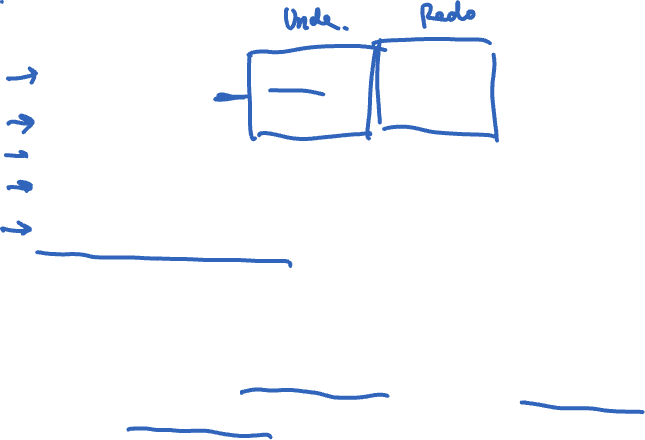 Undo. Redo